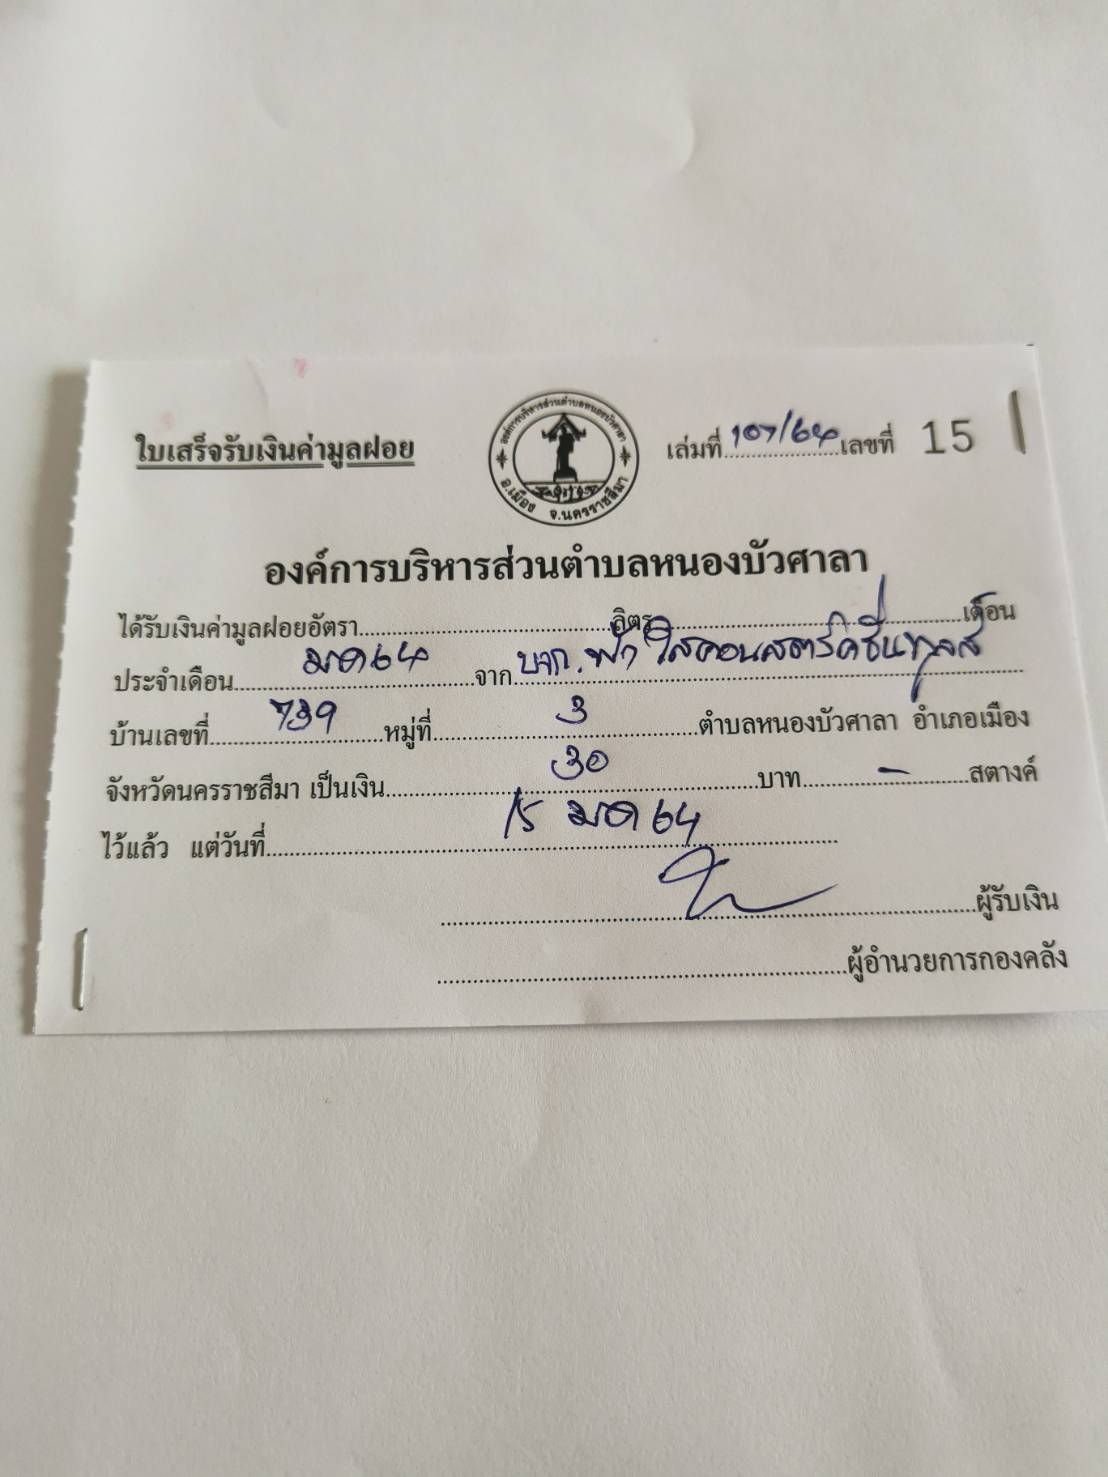 ใบเสร็จรับเงินค่ามูลฝอย
องค์การบริหารส่วนตำบลหนองบัวศาลา
อ.เมือง จ.นครราชสีมา
เล่มที่ 107/64 เลขที่ 15
องค์การบริหารส่วนตำบลหนองบัวศาลา
ได้รับเงินค่ามูลฝอยอัตรา ลิตร เดือน
ประจำเดือน มค 64 จาก บจก. ฟ้าใสคอนสตรัคชั่นทูลส์
บ้านเลขที่ 739 หมู่ที่ 3 ตำบลหนองบัวศาลา อำเภอเมือง
จังหวัดนครราชสีมา เป็นเงิน 30 บาท - สตางค์
ไว้แล้ว แต่วันที่ 15 มค 64
ผู้รับเงิน
ผู้อำนวยการกองคลัง